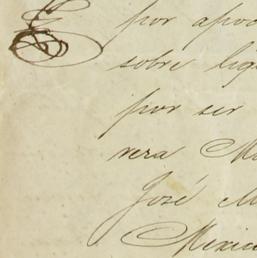 por apod
sobre liq
por ser
vera M
José M
Mexic